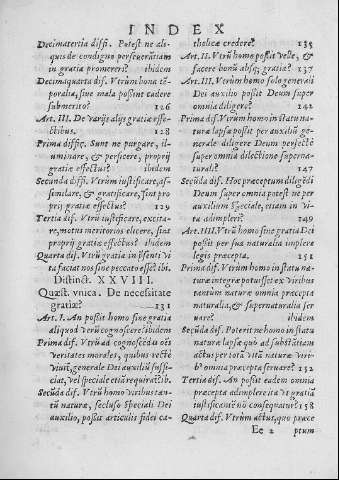 INDEX
Decimatertia diffi. Potest ne ali-
quis de condigno perseuerãtiam
in gratia promereri? ibidem
Decimaquarta dif. Vtrùm bona tẽ-
poralia, sine mala possint cadere
sub merito? 126
Art. III. De varijs alijs gratiæ effe-
ctibus. 128
Prima diffic. Sunt ne purgare, il-
luminare, & perficere, proprij
gratiæ effectus? ibidem
Secunda diffi. Vtrùm iustificare, as-
similare, & gratificare, sint pro
prij gratiæ effectus? 129
Tertia dif. Vtrũ iustificare, excita-
re, motus meritorios elicere, sint
proprij gratiæ effectus? ibidem
Quarta dif. Vtrũ gratia in p̃senti vi
ta factat nos sine peccato esse? ibi.
Distinct. XXVIII.
Quæst. vnica. De necessitate
gratiæ? 131
Art. I. An possit homo sine gratia
aliquod verũ cognoscere? ibidem
Prima dif. Vtrùm ad cognoscẽdas oẽs
veritates morales, quibus rectè
viuit, generale Dei auxiliũ suffi-
ciat, vel speciale etiã requirat? ib.
Secũda dif. Vtrũ homo viribus tan-
tũ naturæ, secluso speciali Dei
auxilio, possit articulis fidei ca-
tholicæ credere? 135
Art. II. Vtrũ homo possit velle, &
facere bonũ absq; gratia? 137
Art. III. Vtrùm homo solo generali
Dei auxilio possit Deum super
omnia diligere? 142
Prima dif. Vtrùm homo in statu na-
turæ lapsæ possit per auxiliũ ge-
nerale diligere Deum perfectè
super omnia dilectione superna-
turali? 147
Secũda dif. Hoc præceptum diligẽdi
Deum super omnia potest ne per
auxilium speciale, etiam in vi-
ta adimpleri? 149
Art. IIII. Vtrũ homo sine gratia Dei
possit per sua naturalia implere
legis præcepta. 151
Prima dif. Vtrùm homo in statu na-
turæ integræ potuisset ex viribus
tantùm naturæ omnia præcepta
naturalia, & supernaturalia ser
uare? ibidem
Secũda dif. Poterit ne homo in statu
naturæ lapsæ quò ad substãtiam
actus per totã vitã naturæ viri-
bꝰ omnia præcepta seruare? 152
Tertia dif. An possit eadem omnia
præcepta adimplere ita vt gratiã
iustificantẽ nõ consequatur? 158
Quarta dif. Vtrùm actus, quo præce
Ee 2 ptum